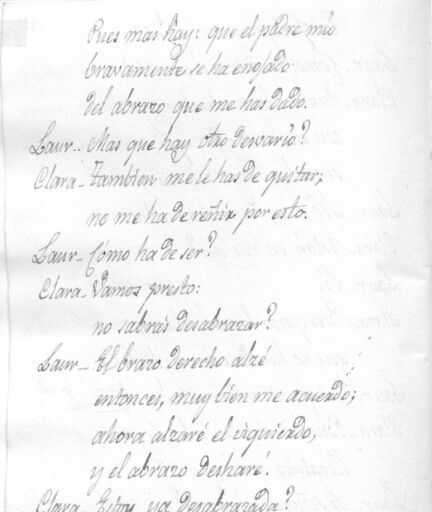 Pues mas hay: que el padre mío
bravamente se ha enojado
del abrazo que me has dado.
Laur.. Mas que hay otro desvarío?
Clara - Tambien me le has de quitar,
no me ha de reñir por esto.
Laur - Cómo ha de ser?
Clara - Vamos presto:
no sabrás desabrazar?
Laur - El brazo derecho alzé
entonces, muy bien me acuerdo;
ahora alzaré el izquierdo,
y el abrazo desharé.
Clara - Estoy ya desabrazada?